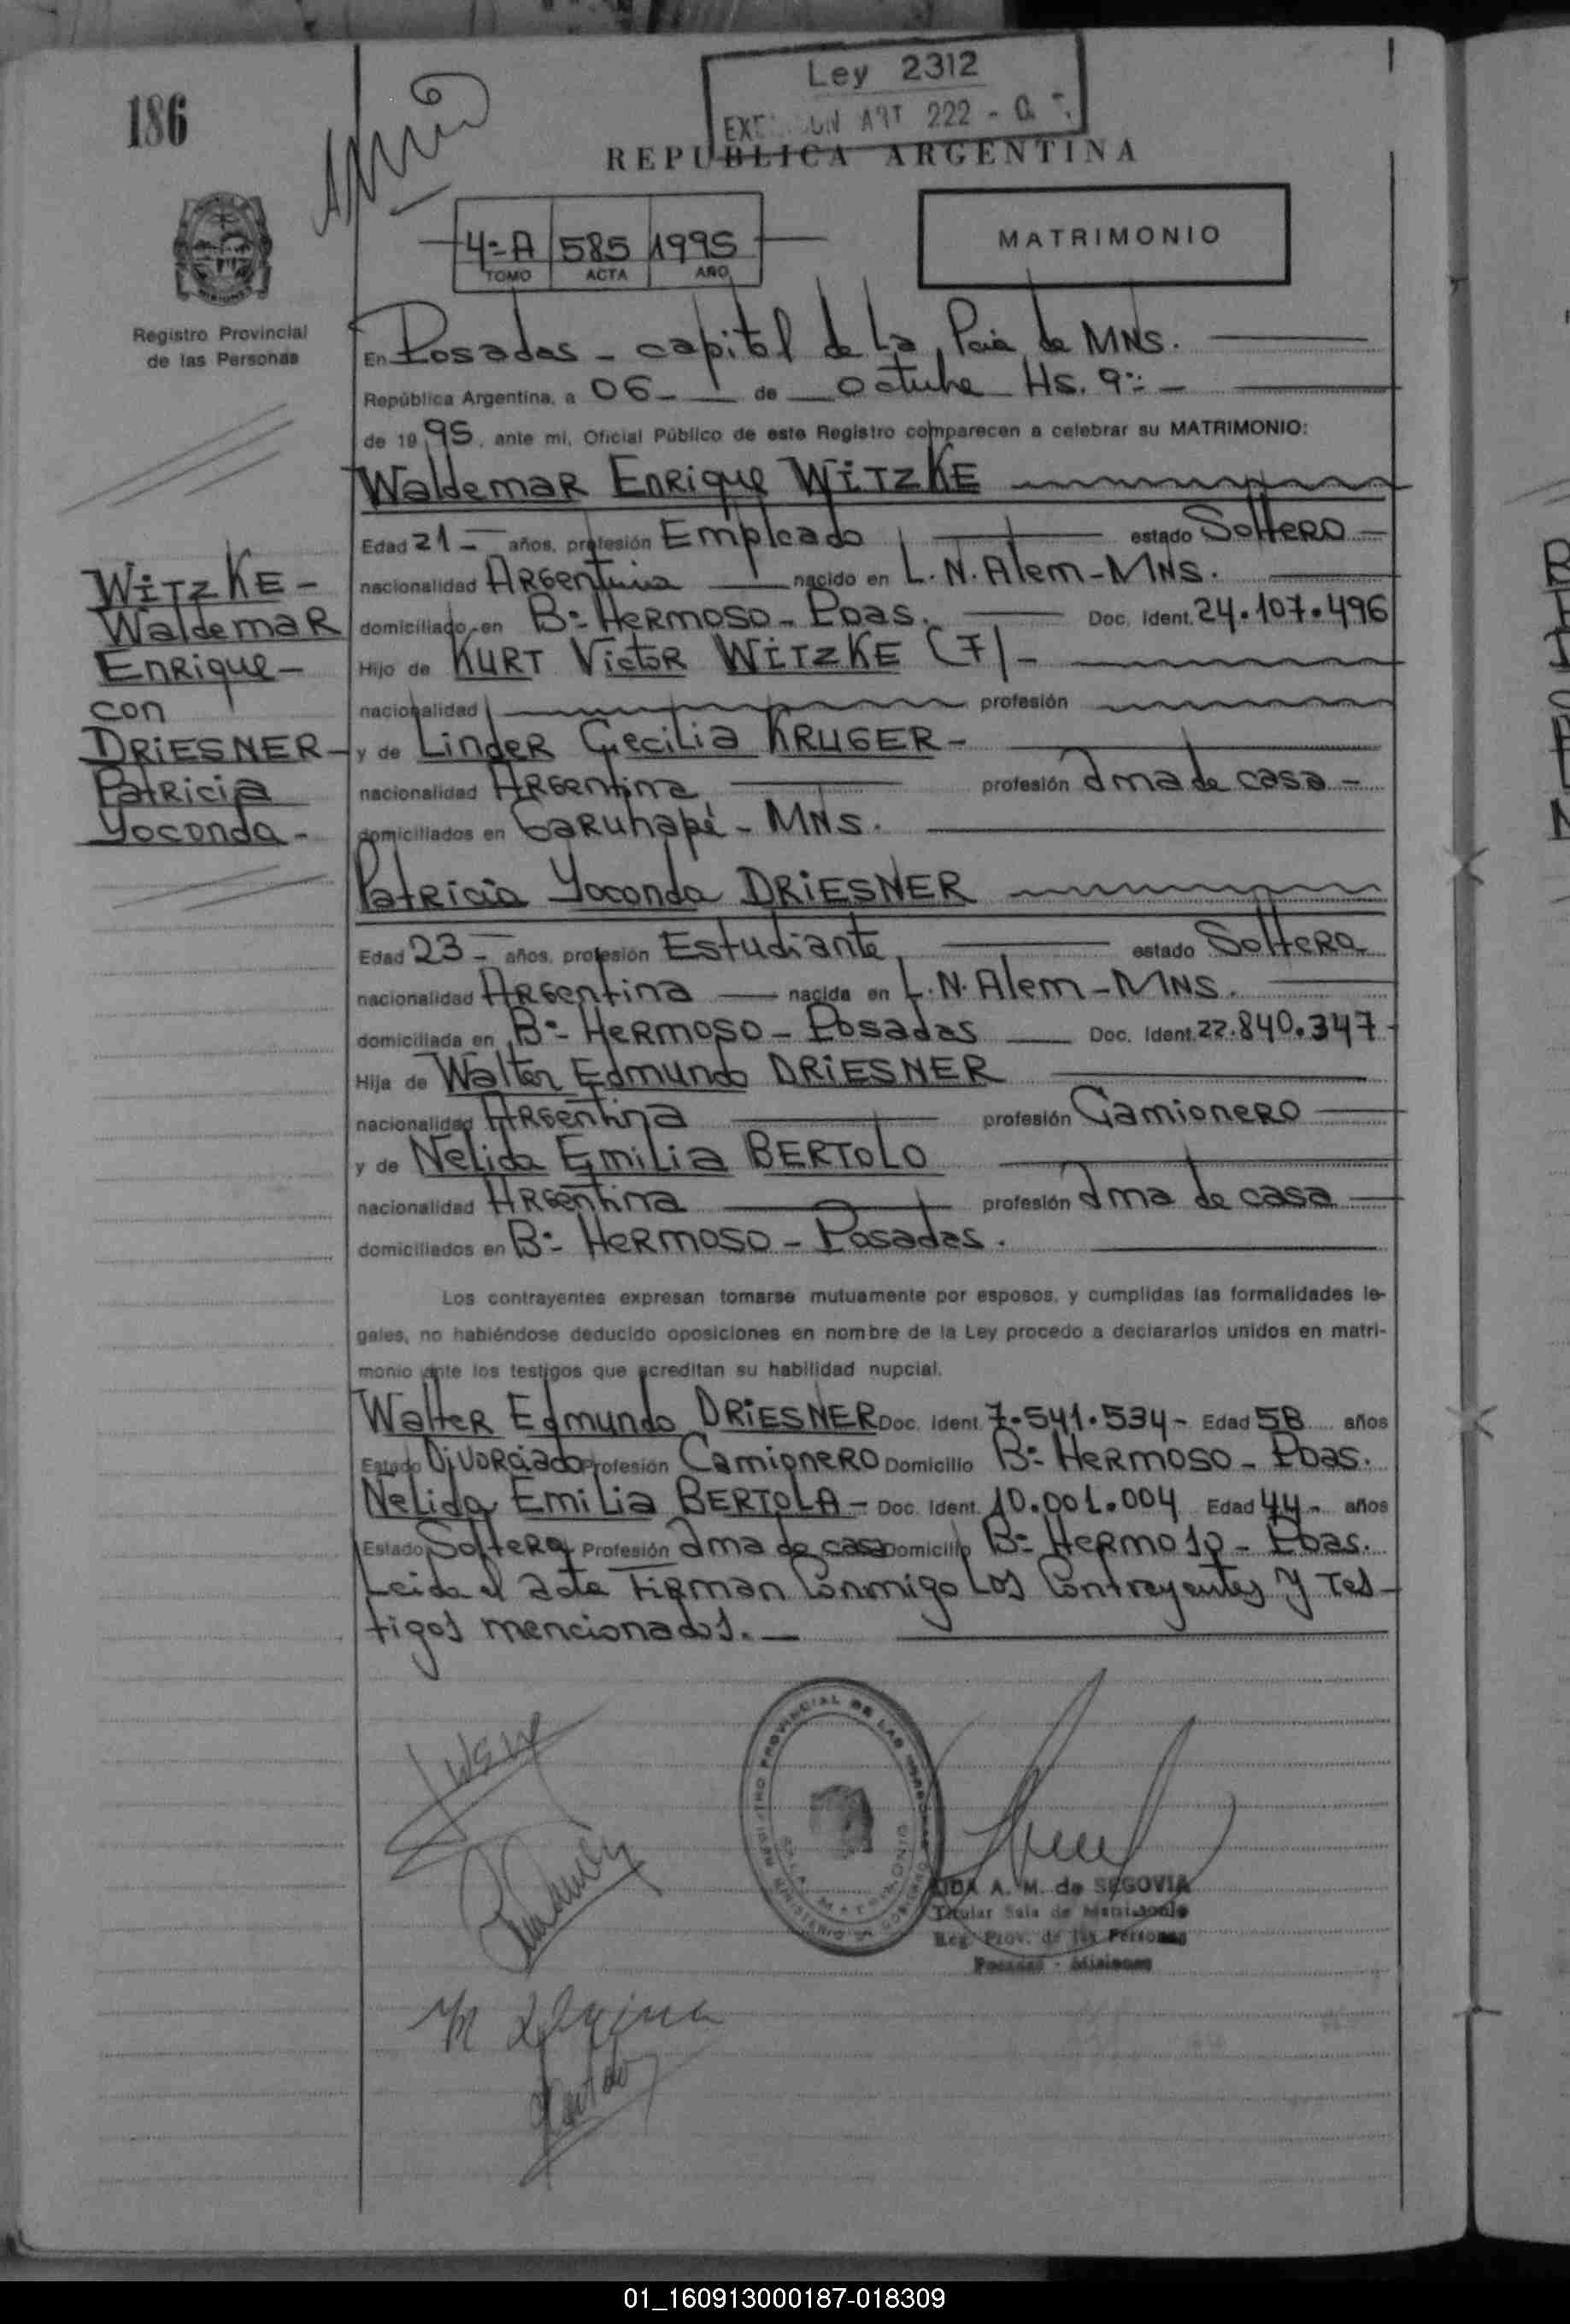 186
Ley 2312
ART 222 -
REPUBLICA ARGENTINA
4º A 585 1995
TOMO ACTA AÑO
MATRIMONIO
Registro Provincial
de las Personas
En Posadas - capital de La Pcia de MNS.
República Argentina, a 06 - de octubre Hs. 9:-
de 1995, ante mi, Oficial Público de este Registro comparecen a celebrar su MATRIMONIO:
Waldemar Enrique WITZKE
Edad 21 - años, profesión Empleado estado Soltero
nacionalidad Argentina nacido en L.N. Alem - MNS.
domiciliado en Bº Hermoso - Pdas. Doc. Ident. 24.107.496
Hijo de KURT Victor WITZKE (F) -
nacionalidad profesión
y de Linder Cecilia KRUGER -
nacionalidad Argentina profesión ama de casa -
domiciliados en Garuhapé - MNS.
WITZKE -
Waldemar
Enrique -
con
DRIESNER -
Patricia
Yoconda -
Patricia Yoconda DRIESNER
Edad 23 - años, profesión Estudiante estado Soltera
nacionalidad Argentina nacida en L.N. Alem - MNS.
domiciliada en Bº - Hermoso - Posadas Doc. Ident. 22.840.347
Hija de Walter Edmundo DRIESNER
nacionalidad Argentina profesión Camionero
y de Nelida Emilia BERTOLO
nacionalidad Argentina profesión ama de casa
domiciliados en Bº - Hermoso - Posadas.
Los contrayentes expresan tomarse mutuamente por esposos, y cumplidas las formalidades le-
gales, no habiéndose deducido oposiciones en nombre de la Ley procedo a declararlos unidos en matri-
monio ante los testigos que acreditan su habilidad nupcial.
Walter Edmundo DRIESNER Doc. Ident. 7.541.534 - Edad 58 años
Estado Divorciado Profesión Camionero Domicilio Bº - Hermoso - Pdas.
Nelida Emilia BERTOLA - Doc. Ident. 10.001.004 Edad 44 - años
Estado Soltera Profesión ama de casa Domicilio Bº - Hermoso - Pdas.
Leida el acta Firman Conmigo Los Contrayentes y Tes-
tigos mencionados.
A. M. de SEGOVIA
Titular Sala de Matrimonio
Reg. Prov. de las Personas
Posadas - Misiones
01_160913000187-018309